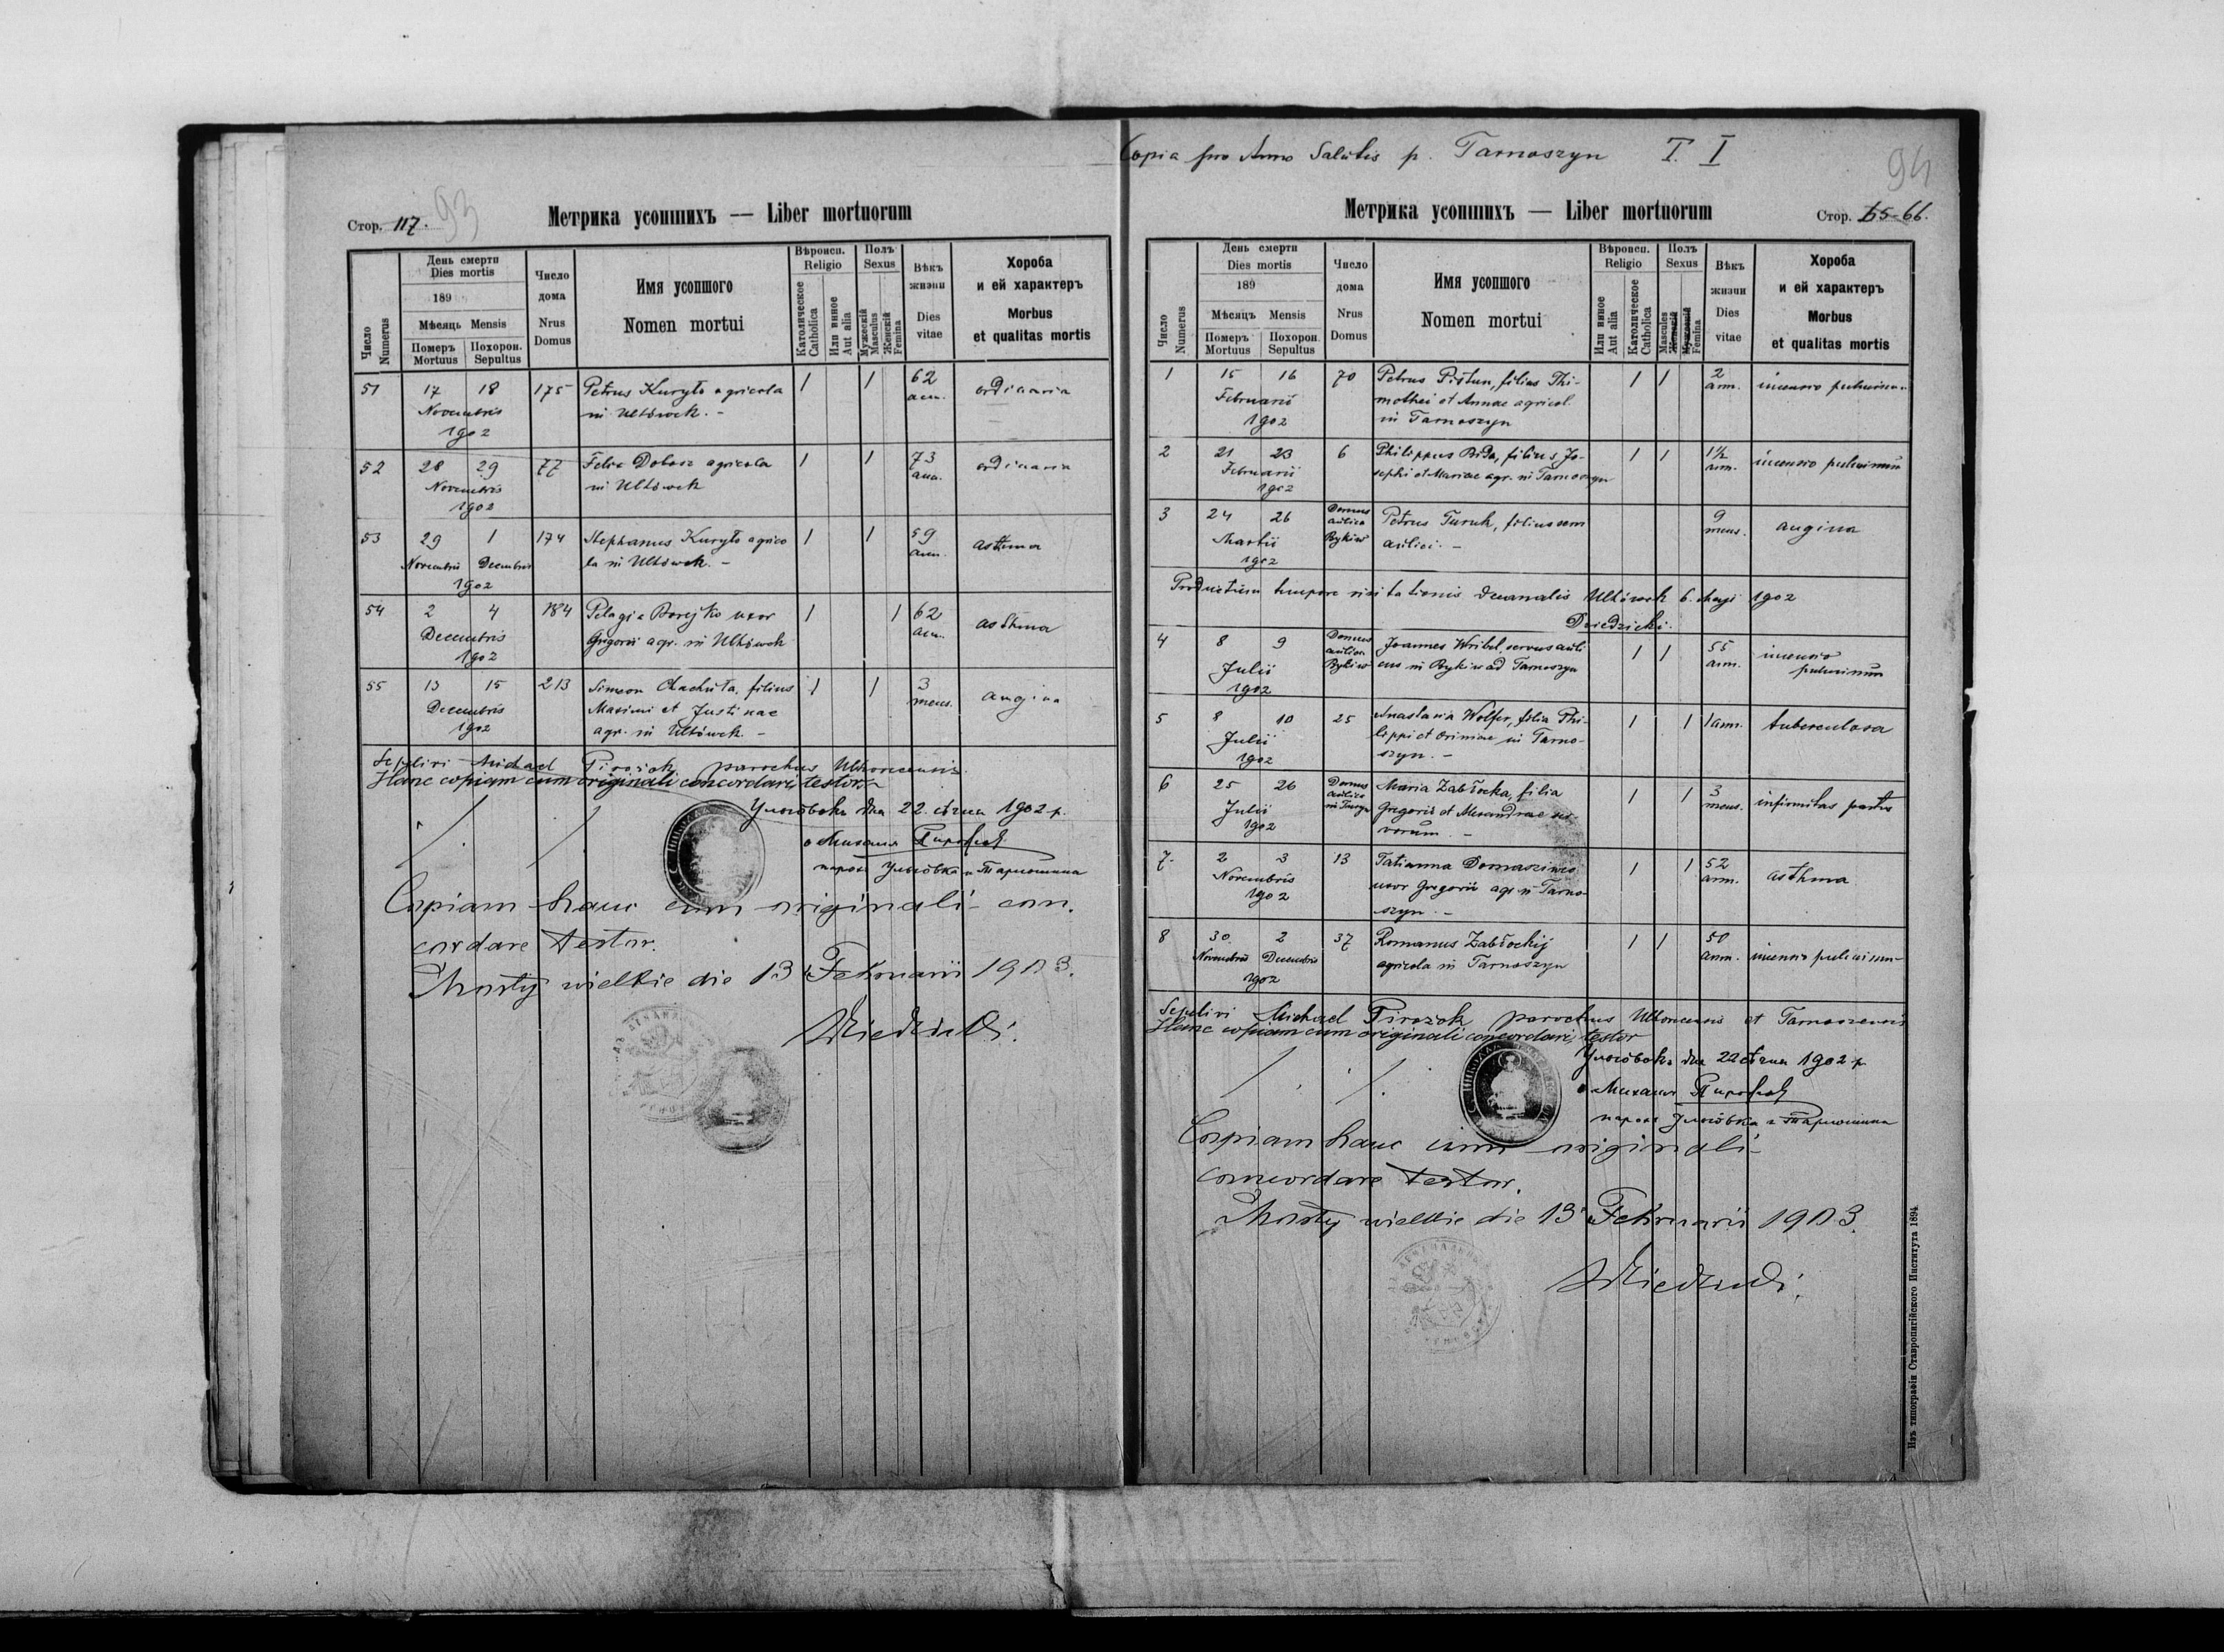 Стор. 117.
93
Метрика усопшихъ — Liber mortuorum
Число Numerus
День смерти
Dies mortis
189
Мѣсяць Mensis
Померъ Mortuus
Похорон. Sepultus
Число дома
Nrus Domus
Имя усопшого
Nomen mortui
Вѣроисп. Religio
Католическое Catholica
Или инное Aut alia
Полъ Sexus
Мужескій Masculus
Женскій Femina
Вѣкъ жизни
Dies vitae
Хороба
и ей характеръ
Morbus
et qualitas mortis
51 17 18 175 Petrus Kuryło agricola 1 1 62 ordinaria
Novembris in Uhtówek. - ann.
1902
52 28 29 77 Felix Dobosz agricola 1 1 73 ordinaria
Novembris in Uhtówek ann.
1902
53 29 1 174 Stephanus Kuryło agrico 1 1 59 asthma
Novembris Decembris la in Uhtówek. - ann.
1902
54 2 4 184 Pelagia Borejko uxor 1 1 62 asthma
Decembris Gregorii agr. in Uhtówek ann.
1902
55 13 15 213 Simeon Machuta, filius 1 1 3 angina
Decembris Maximi et Justinae mens.
1902 agr. in Uhtówek. -
Sepelivi Michael Pirożok parochus
Hanc copiam cum originali concordari testor
дня 22. січня 1902 р.
о Михаилъ Пирожок
парох Угнôвка и Тарношина
Copiam hanc cum originali con.
cordare testor.
Mosty wielkie die 13 Februarii 1903.
Copia pro Anno Salutis p. Tarnoszyn T. I
94
Метрика усопшихъ — Liber mortuorum
Стор. 65-66.
Число Numerus
День смерти
Dies mortis
189
Мѣсяцъ Mensis
Померъ Mortuus
Похорон. Sepultus
Число дома
Nrus Domus
Имя усопшого
Nomen mortui
Вѣроисп. Religio
Или инное Aut alia
Католическое Catholica
Полъ Sexus
Masculus Женскій
Мужескій Femina
Вѣкъ жизни
Dies vitae
Хороба
и ей характеръ
Morbus
et qualitas mortis
1 15 16 70 Petrus Pistun, filius Thi- 1 1 2
Februarii mothei et Annae agricol. ann.
1902 in Tarnoszyn
2 21 23 6 Philippus Bida, filius Jo- 1 1 1½
Februarii sephi et Mariae agr. in Tarnoszyn ann.
1902
3 24 26 Domus aulica Bykiw Petrus Turuk, filius serv 9 angina
Martii aulici. - mens.
1902
Productum tempore visitationis decanalis Uhtówek 6. Maji 1902
Dziedzicki.
4 8 9 Domus aulica Bykiw Joannes Wribel, servus auli 1 1 55
Julii cus in Bykiw ad Tarnoszyn ann.
1902
5 8 10 25 Anastasia Wolfer, filia Phi- 1 1 1 ann. tuberculosa
Julii lippi et in Tarno-
1902 szyn. -
6 25 26 Domus aulica Maria Zabłocka, filia 1 1 3 infirmitas partus
Julii Gregorii et Alexandrae ser mens.
1902 vorum. -
7. 2 3 13 Tatianna 1 1 52 asthma
Novembris uxor Gregorii agr in Tarno- ann.
1902 szyn. -
8 30 2 37 Romanus Zabłockij 1 1 50
Novembris Decembris agricola in Tarnoszyn ann.
1902
Sepelivi Michael Pirożok parochus et
Hanc copiam cum originali concordari testor
дня 22 січня 1902 р.
о Михаилъ Пирожок
парох Угнôвка и Тарношина
Copiam hanc cum originali
concordare testor.
Mosty wielkie die 13 Februarii 1903.
Изъ типографіи Ставропигійского Института 1894